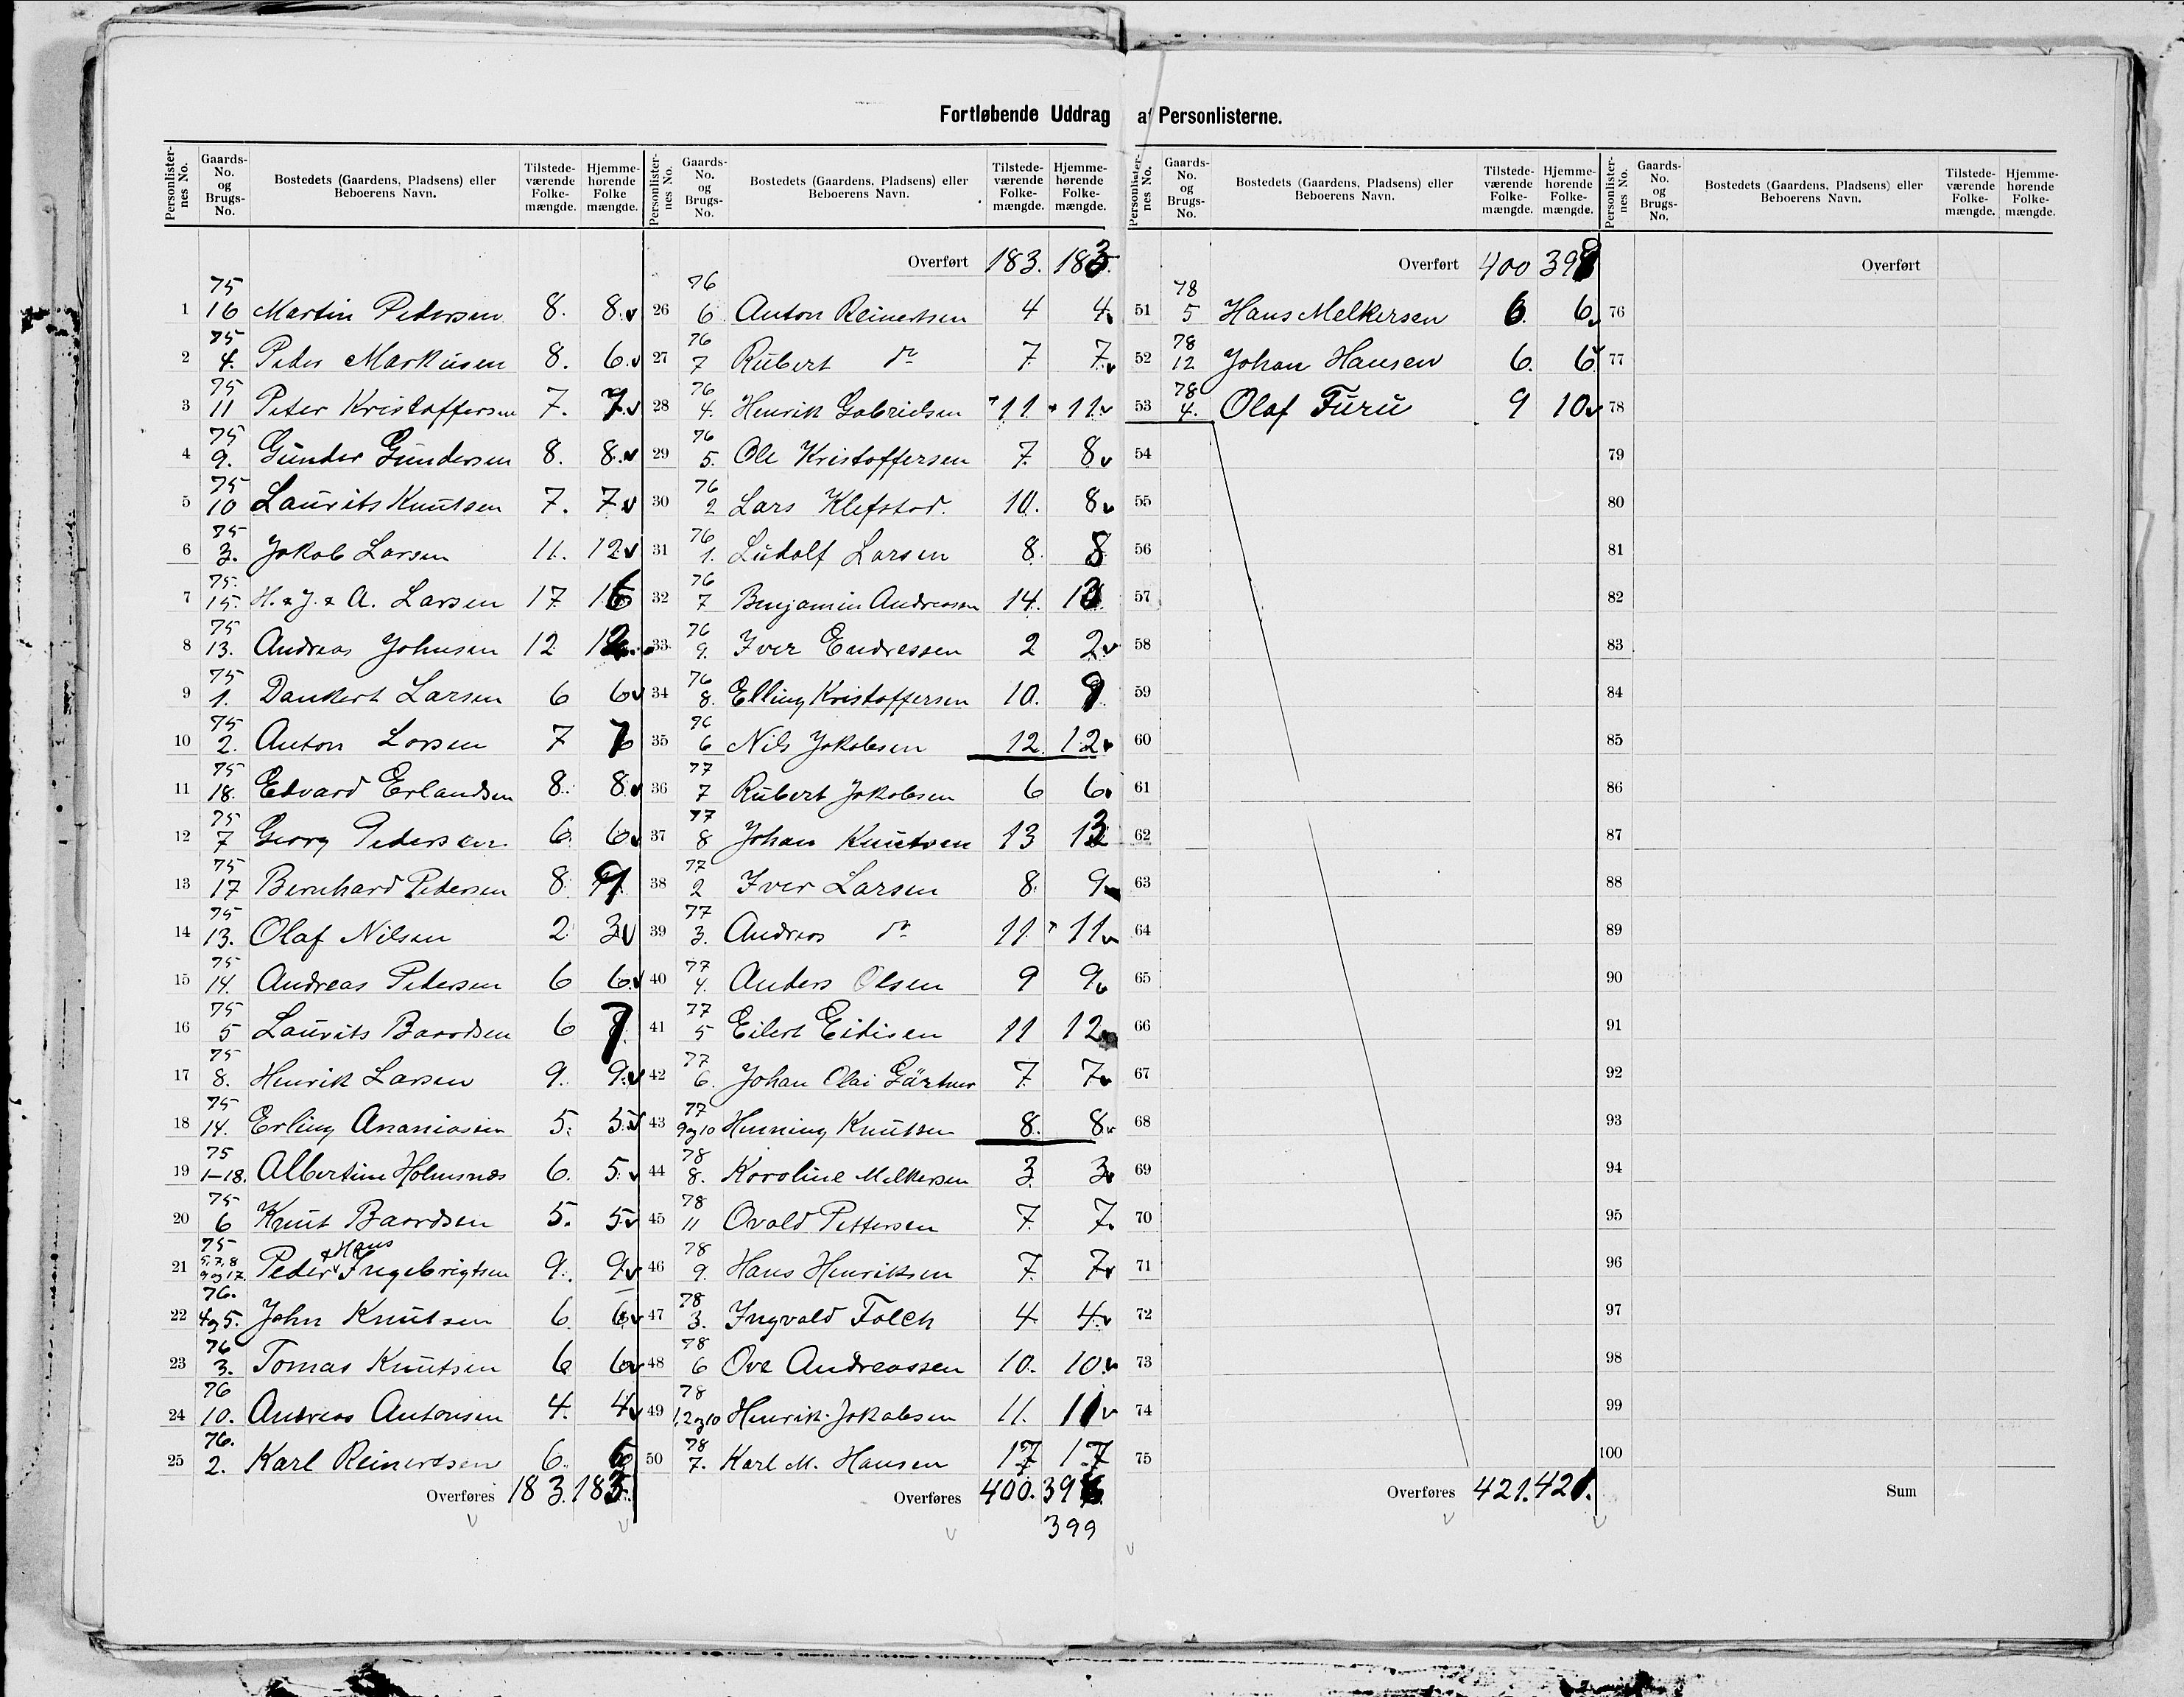 Fortløbende Uddrag af Personlisterne.
Personlister-nes No. Gaards-No. og Brugs-No. Bostedets (Gaardens, Pladsens) eller Beboerens Navn. Tilstede-værende Folke-mængde. Hjemme-hørende Folke mængde.
1 75 16 Martin Pedersen 8. 8.
2 75 4. Peder Markusen 8. 6.
3 75 11 Peter Kristoffersen 7. 7.
4 75 9. Gunder Gundersen 8. 8.
5 75 10 Laurits Knutsen 7. 7.
6 75 3. Jakob Larsen 11. 12
7 75. 15. H. & J. & A. Larsen 17 16
8 75 13. Andreas Johnsen 12 12
9 75 1. Dankert Larsen 6 6
10 75 2. Anton Larsen 7 7
11 75 18. Edvard Erlandsen 8. 8
12 75 7 Georg Pedersen 6. 6
13 75 17 Bernhard Pedersen 8. 9
14 75 13. Olaf Nilsen 2. 3
15 75 14. Andreas Pedersen 6 6.
16 75 5 Laurits Baardsen 6 7
17 75 8. Henrik Larsen 9. 9.
18 75 14. Erling Ananiasen 5. 5.
19 75 1-18. Albertine Holmsnæs 6. 5.
20 75 6 Knut Baardsen 5. 5.
21 75 5,7,8 9 og 17. Peder & Hans Ingebrigtsen 9. 9.
22 76. 4 og 5. John Knutsen 6. 6
23 76 3. Tomas Knutsen 6 6
24 76 10. Andreas Antonsen 4. 4
25 76. 2. Karl Reinertsen 6. 6
Overføres 183. 183
Personlister-nes No. Gaards-No. og Brugs-No. Bostedets (Gaardens, Pladsens) eller Beboerens Navn. Tilstede-værende Folke-mængde. Hjemme-hørende Folke-mængde.
Overført 183. 183
26 76 6 Anton Reinertsen 4 4
27 76 7 Rubert do 7 7
28 76 4. Henrik Gabrielsen 11 11
29 76 5. Ole Kristoffersen 7. 8
30 76 2 Lars Klefstad. 10. 8
31 76 1. Ludolf Larsen 8. 8
32 76 7 Benjamin Andreassen 14. 13
33 76 9. Iver Endressen 2 2
34 76 8. Elling Kristoffersen 10. 9
35 76 6 Nils Jakobsen 12. 12
36 77 7 Rubert Jakobsen 6 6
37 77 8 Johan Knutsen 13 13
38 77 2 Iver Larsen 8. 9
39 77 3. Andreas do 11 11
40 77 4. Anders Olsen 9 9
41 77 5 Eilert Eidisen 11 12
42 77 6. Johan Olai Gärtner 7. 7
43 77 9 og 10 Henning Knutsen 8. 8
44 78 8. Karoline Melkersen 3. 3
45 78 11 Ovald Pettersen 7. 7.
46 78 9. Hans Henriksen 7. 7
47 78 3. Ingvald Falch 4. 4.
48 78 6 Ove Andreassen 10. 10.
49 78 1,2 og 10 Henrik Jakobsen 11. 11
50 78 7. Karl M. Hansen 17 17
Overføres 400. 39
399
Personlister-nes No. Gaards-No. og Brugs-No. Bostedets (Gaardens, Pladsens) eller Beboerens Navn. Tilstede-værende Folke-mængde. Hjemme-hørende Folke-mængde.
Overført 400 399
51 78 5 Hans Melkersen 6. 6
52 78 12 Johan Hansen 6. 6
53 78 4. Olaf Furu 9 10
54
55
56
57
58
59
60
61
62
63
64
65
66
67
68
69
70
71
72
73
74
75
Overføres 421. 421.
Personlister-nes No. Gaards-No. og Brugs-No. Bostedets (Gaardens, Pladsens) eller Beboerens Navn. Tilstede-værende Folke-mængde. Hjemme-hørende Folke-mængde.
Overført
76
77
78
79
80
81
82
83
84
85
86
87
88
89
90
91
92
93
94
95
96
97
98
99
100
Sum